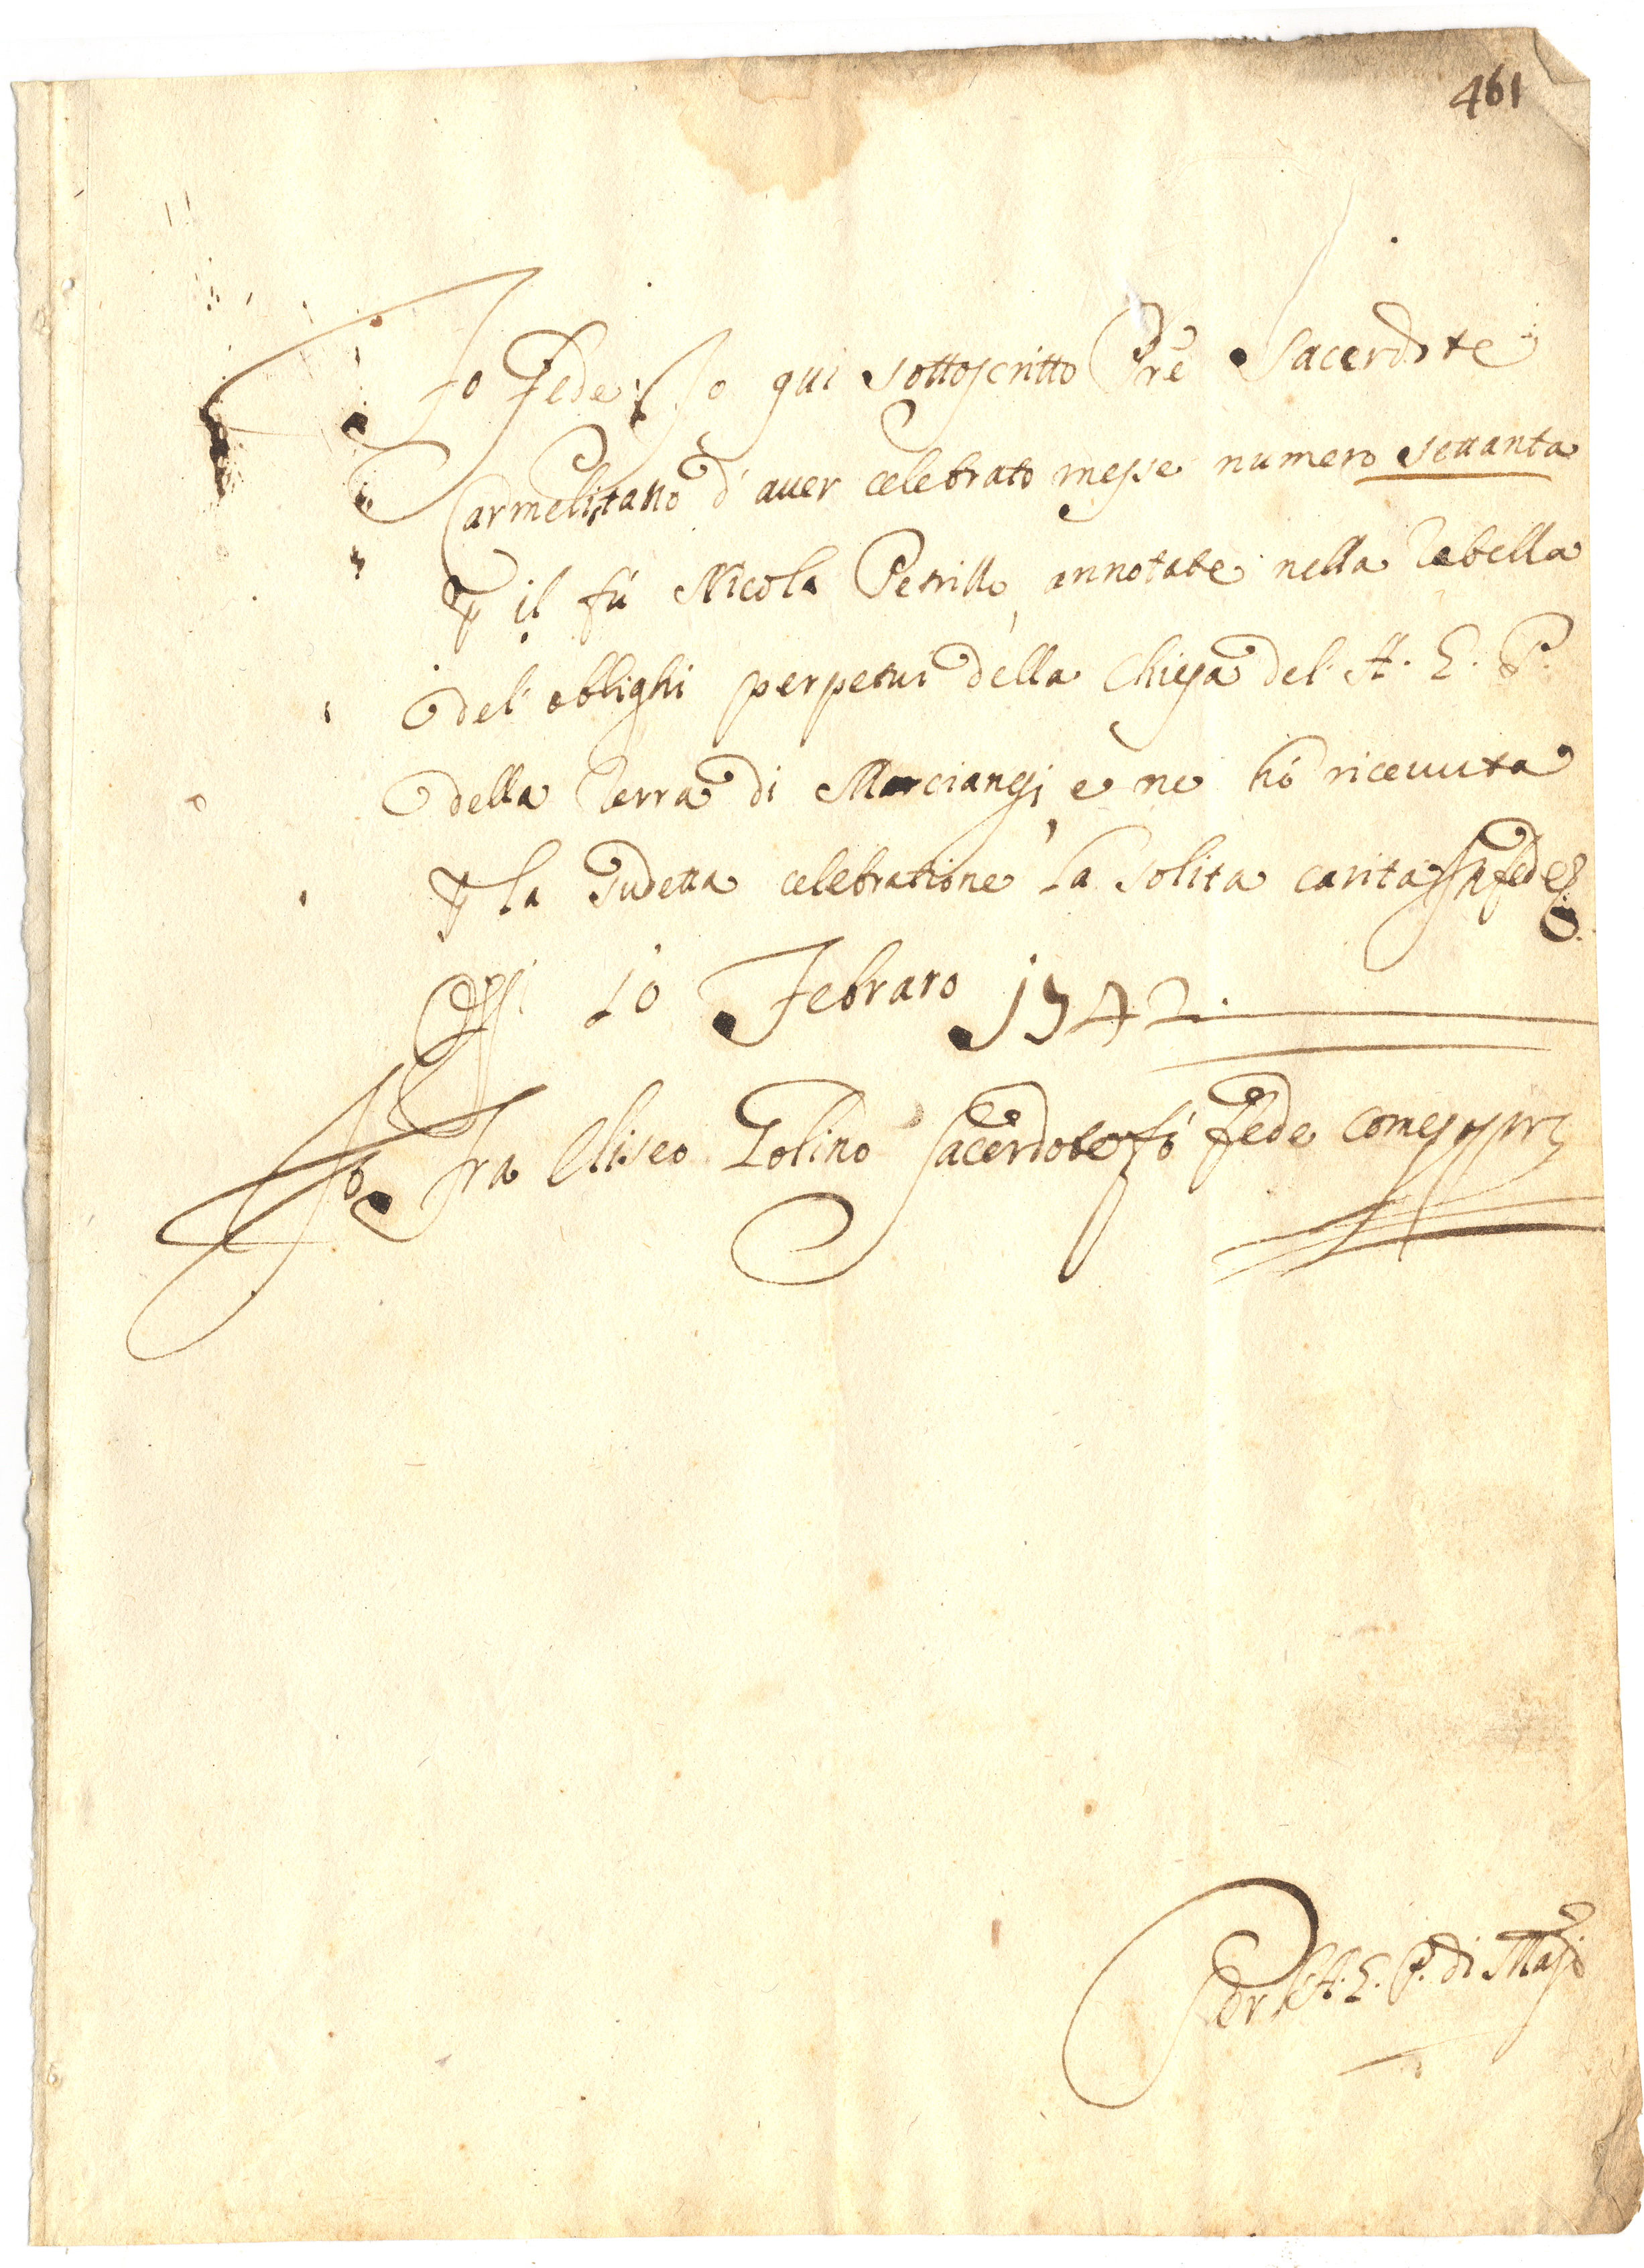 461
Fo Fede Io qui sottoscritto Pre Sacerdote
Carmelitano d'auer celebrato messe numero settanta
il fù Nicola Petrillo, annotate nella Tabella
del' oblighi perpetui della Chiesa del' A. G. P.
della Terra di Marcianesi, e ne hò riceuuta
la sudetta celebratione la solita carità In fede
10 Febraro 1742
Io Fra Eliseo Golino Sacerdote fò fede come sopra
A. G. P. di